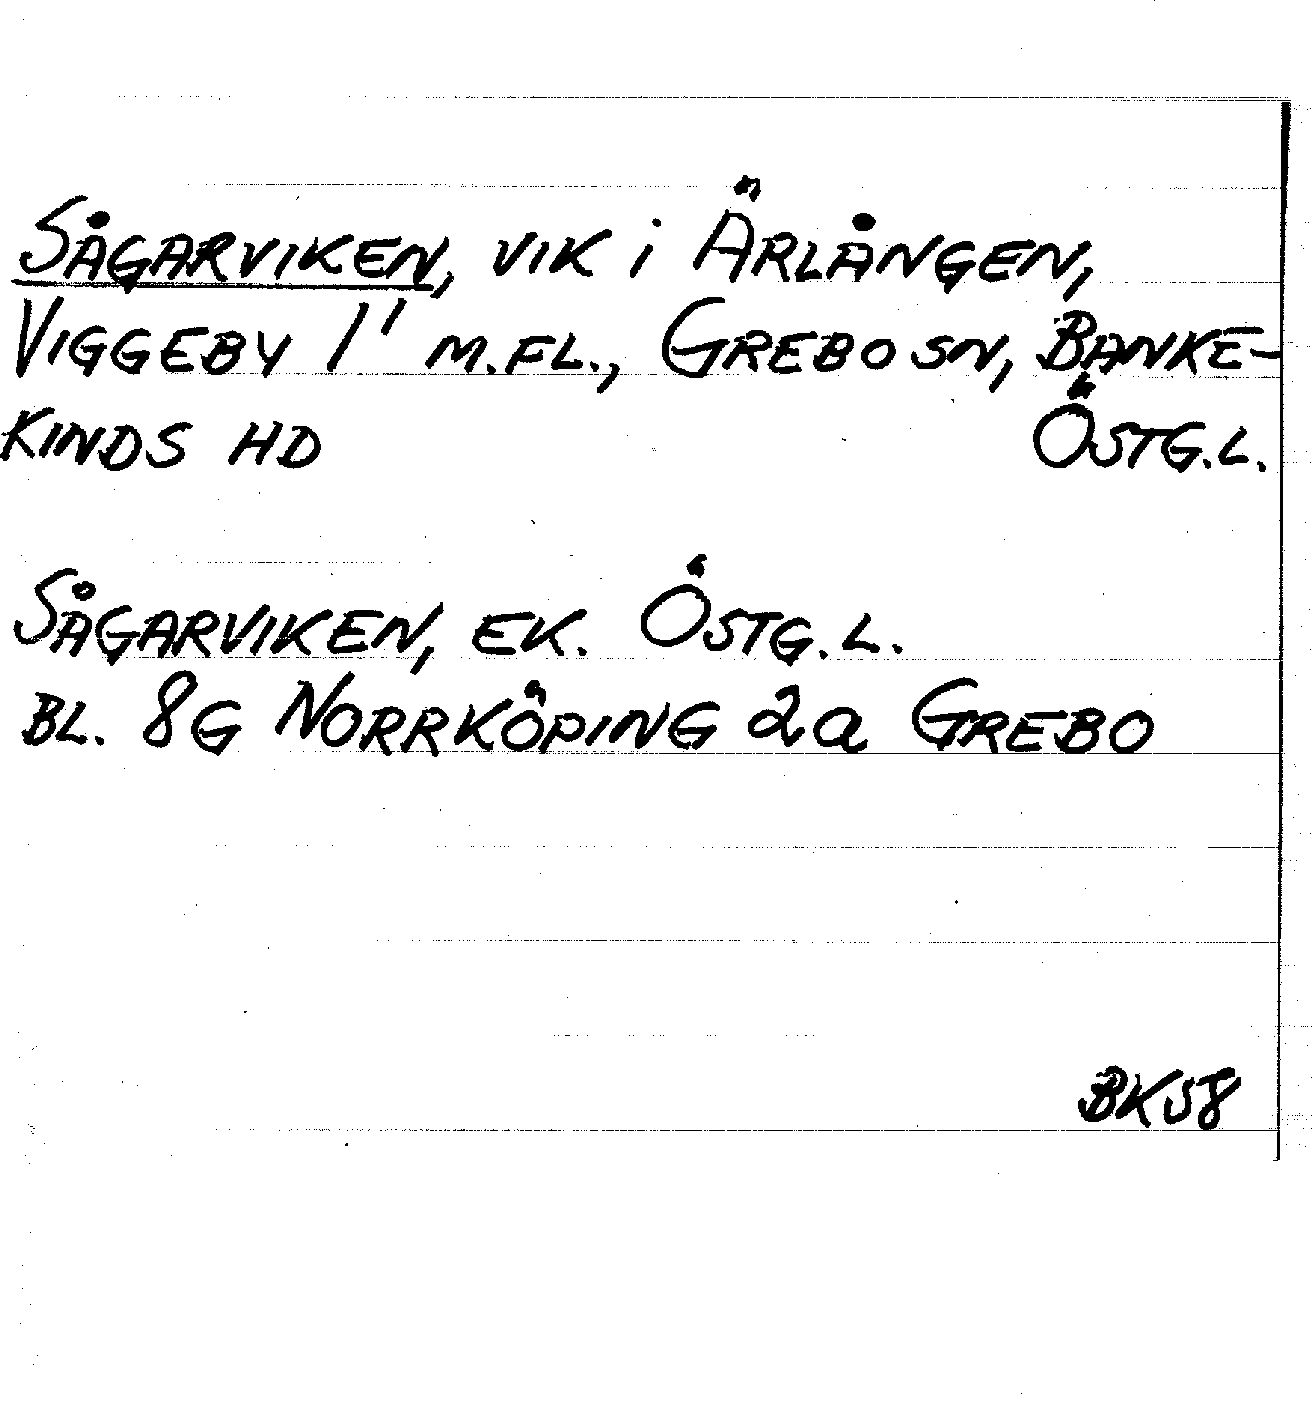 SÅGARVIKEN, VIK i ÄRLÅNGEN,
VIGGEBY 1' M.FL., GREBO SN, BANKE-
KINDS HD ÖSTG.L.
SÅGARVIKEN, EK. ÖSTG.L.
BL. 8G NORRKÖPING 2a GREBO
BK58